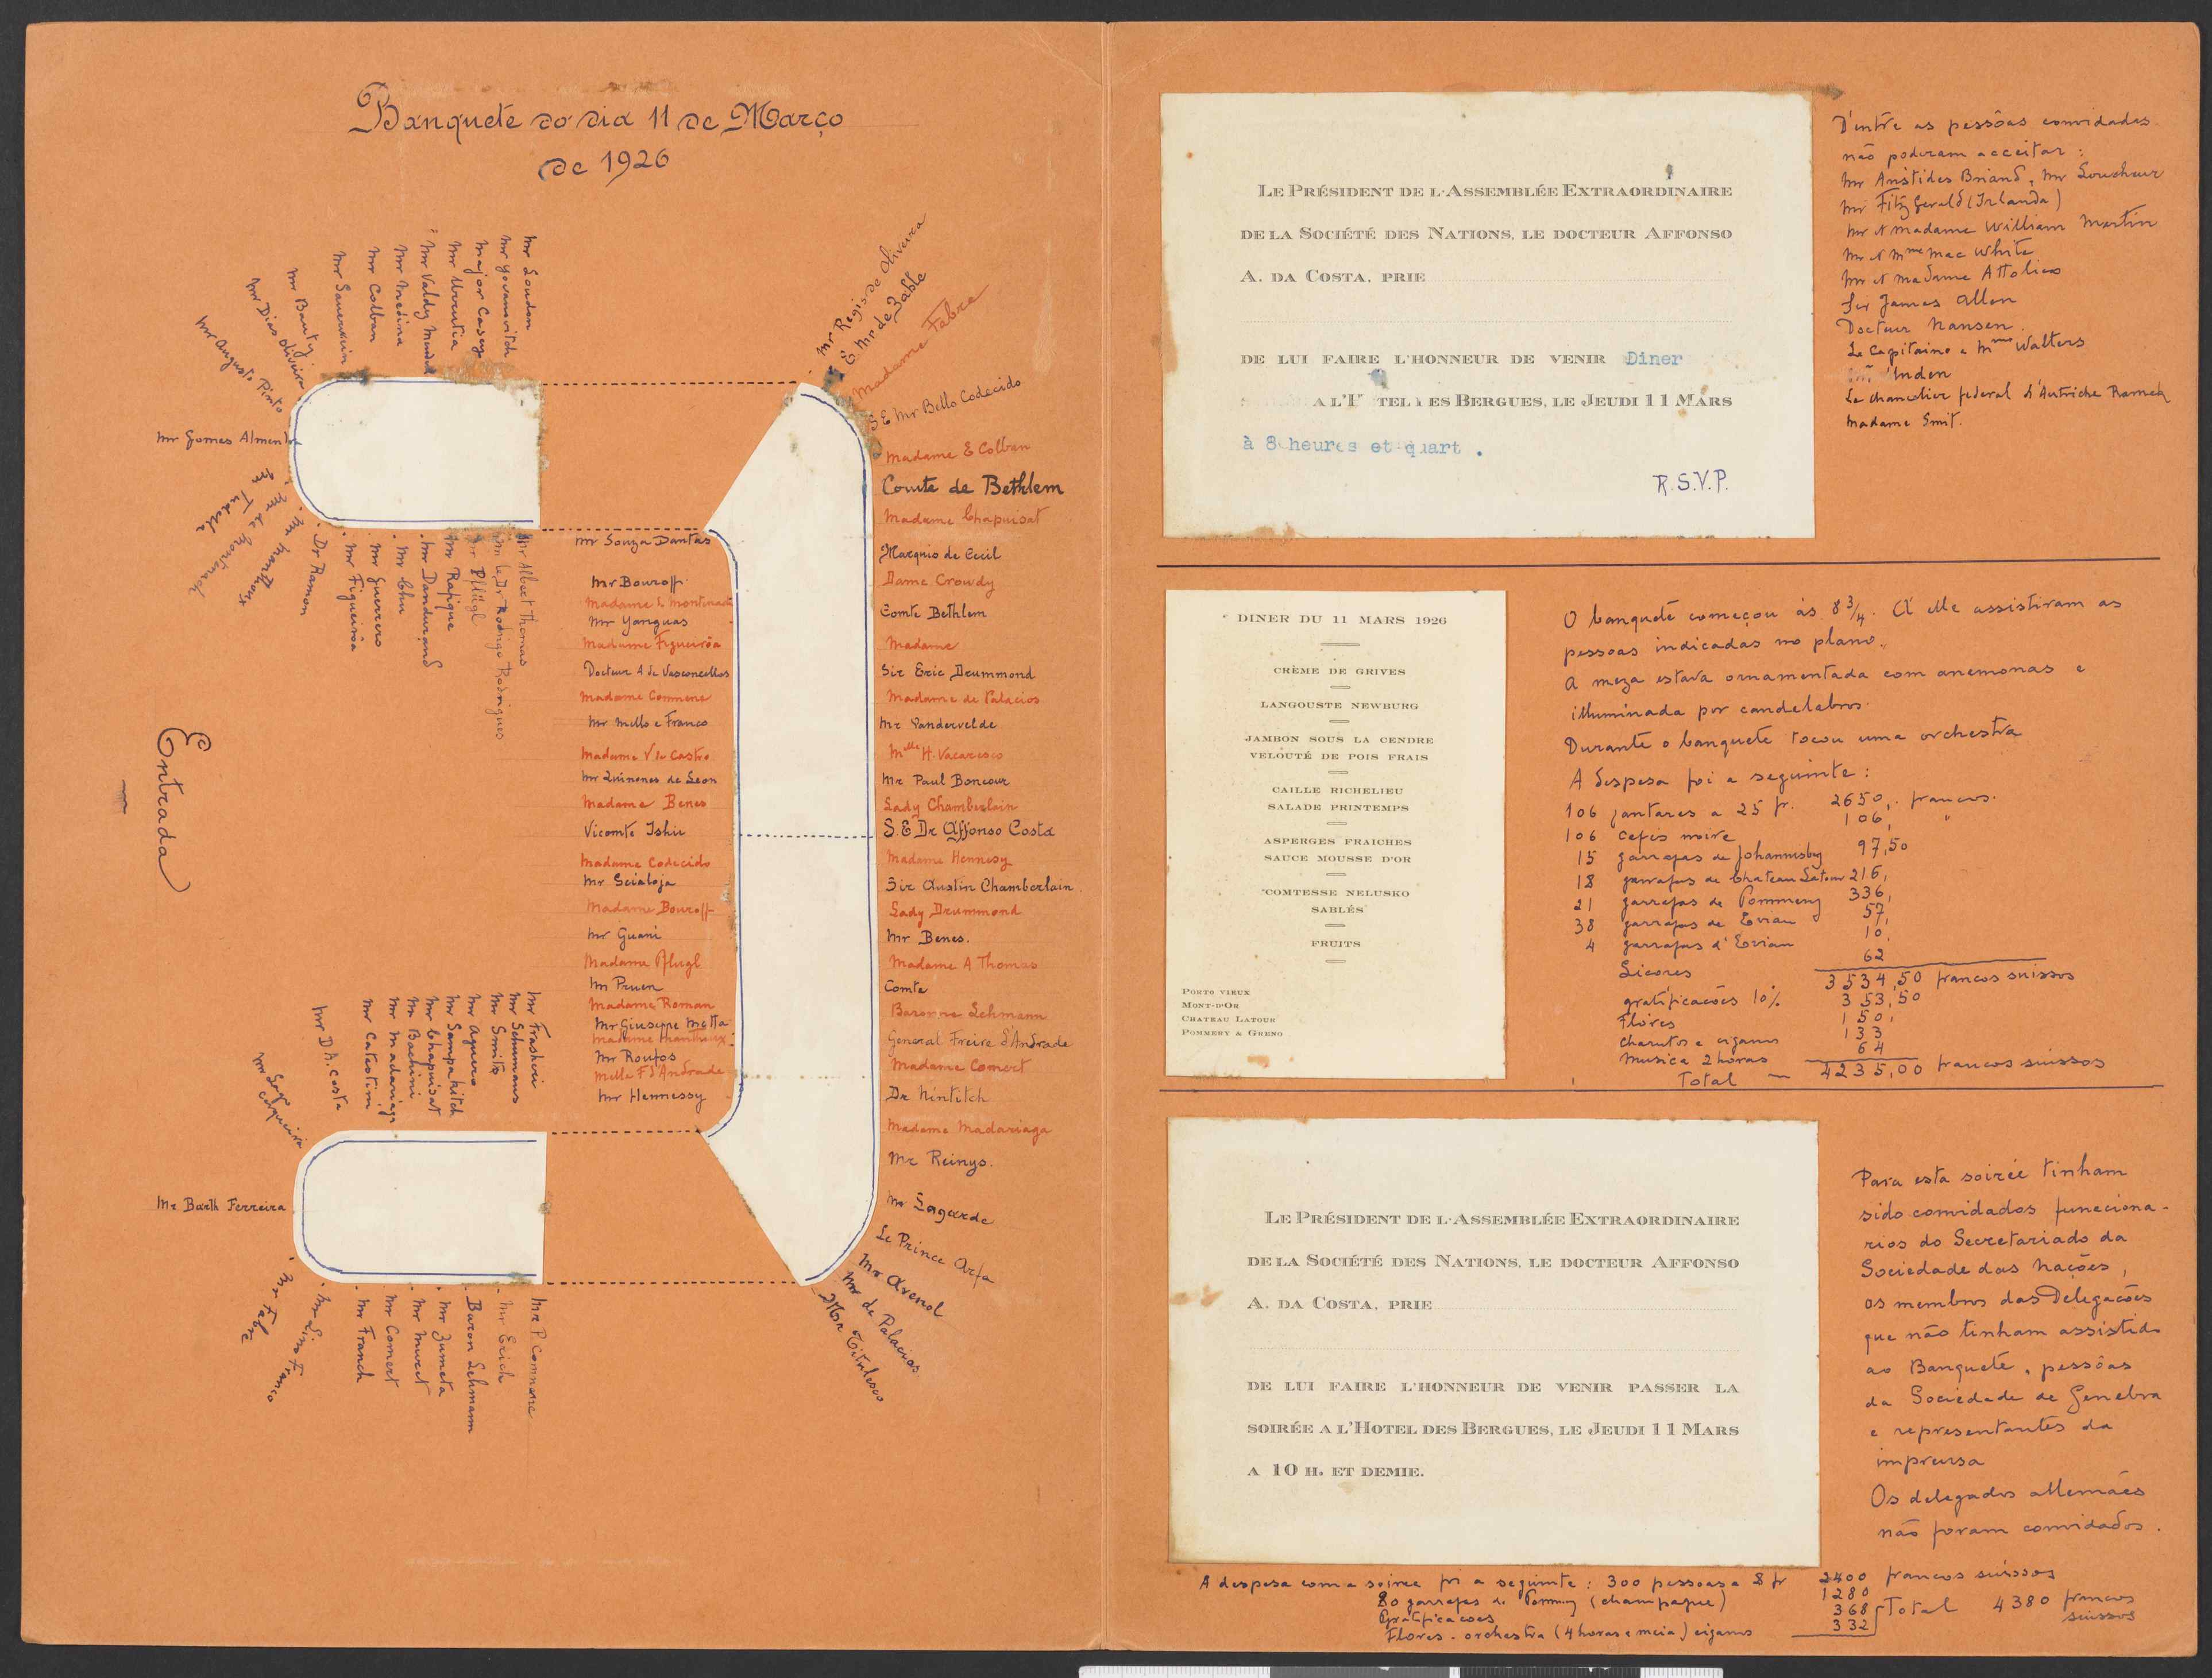 Banquete do dia 11 de Março
de 1926
Mr Loudon
Mr Yovanovitch
Major Casey
Mr Urrutia
Mr Medina
Mr Colban
Mr Sauerwein
Mr Bauty
Mr Dias Oliveira
Mr Augusto Pinto
Mr Gomes Almen
Mr Tudela
Mr de Montenach
Dr Ramon
Mr Figueirôa
Mr Guerrero
Mr Chu
Mr Dandurand
Mr Rapique
Mr Pflügl
Mr le Dr Rodrigo Rodrigues
Mr Albert Thomas
Mr Regis de Oliveira
S. E. Mr de Zahle
Madame Fabre
S. E. Mr Bello Codecido
Madame E Colban
Comte de Bethlem
Madame Chapuisat
Marquis de Cecil
Dame Crowdy
Comte Bethlem
Madame
Sir Eric Drummond
Madame de Palacios
Mr Vandervelde
Mlle H. Vacaresco
Mr Paul Boncour
Lady Chamberlain
S. E Dr Affonso Costa
Madame Hennesy
Sir Austin Chamberlain.
Lady Drummond
Mr Benes.
Madame A Thomas
Comte
Baronne Lehmann
General Freire d'Andrade
Madame Comert
Dr Nintitch
Madame Madariaga
Mr Reinys.
Mr Lagarde
Le Prince Arfa
Mr Avenol
Mr de Palacios
Mr Titulesco
Mr Souza Dantas
Mr Bouroff
Madame de Montenach
Mr Yanguas
Madame Figueirôa
Docteur A de Vasconcellos
Madame Comnene
Mr Mello e Franco
Madame V de Castro
Mr Quinones de Leon
Madame Benes
Vicomte Ishii
Madame Codecido
Mr Scialoja
Madame Bouroff
Mr Guani
Madame Pflugl
Mr Pruen
Madame Roman
Mr Giuseppe Motta
Madame Manthoux
Mr Roufos
Melle F d'Andrade
Mr Hennessy
Entrada
Mr Frasheri
Mr Schumans
Mr Smits
Mr Aguero
Mr Sampahitch
Mr Chapuisat
Mr Bachini
Mr Madariaga
Mr Catastini
Mr D A. Costa
Mr Barth Ferreira
Mr Fabre
Mr Franch
Mr Comert
Mr Muret
Mr Zumeta
Baron Lehmann
Mr Erich
Mr P Comnene
Le Président de l'Assemblée Extraordinaire
de la Société des Nations, le docteur Affonso
A. da Costa, prie
de lui faire l'honneur de venir Diner
a l'H tel es Bergues, le Jeudi 11 Mars
à 8 heures et quart .
R.S.V.P.
D'entre as pessôas convidadas
não poderam acceitar :
Mr Aristides Briand, Mr Loucheur
Mr Fitz Gerald (Irlanda)
Mr et Madame William Martin
Mr et Mme Mac White
Mr et Madame Attolico
Sir James Allen
Docteur Nansen
Le Capitaine e Mme Walters
Unden
Le chancelier federal d'Autriche Ramek
Madame Smit.
DINER DU 11 MARS 1926
CRÈME DE GRIVES
LANGOUSTE NEWBURG
JAMBON SOUS LA CENDRE
VELOUTÉ DE POIS FRAIS
CAILLE RICHELIEU
SALADE PRINTEMPS
ASPERGES FRAICHES
SAUCE MOUSSE D'OR
COMTESSE NELUSKO
SABLÉS
FRUITS
Porto vieux
Mont-d'Or
Chateau Latour
Pommery & Greno
O banquete começou ás 8 3/4. A elle assistiram as
pessoas indicadas no plano.
A meza estava ornamentada com anemonas e
illuminada por candelabros.
Durante o banquete tocou uma orchestra
A despesa foi a seguinte :
106 jantares a 25 fr. 2650, francos.
106 cafés noire 106, "
15 garrafas de Johannisberg 97,50
18 garrafas de Chateau Latour 216,
21 garrafas de Pommery 336,
38 garrafas de Evian 57,
4 garrafas d'Evian 10,
Licores 62
3534,50 francos suissos
gratificacões 10% 353,50
Flôres 150,
charutos e cigarros 133
Musica 2 horas 64
Total — 4235,00 francos suissos
Le Président de l'Assemblée Extraordinaire
de la Société des Nations, le docteur Affonso
A. da Costa, prie
de lui faire l'honneur de venir passer la
soirée a l'Hotel des Bergues, le Jeudi 11 Mars
a 10 h. et demie.
Para esta soirée tinham
sido convidados funcciona-
rios do Secretariado da
Sociedade das Nações,
os membros das Delegacões
que não tinham assistido
ao Banquete, pessôas
da Sociedade de Genebra
e representantes da
imprensa
Os delegados allemães
não foram convidados.
A despesa com a soiree foi a seguinte : 300 pessoas a 8 fr 2400 francos suissos
80 garrafas de Pommery (champagne) 1280
Gratificacoes 368
Flores - orchestra (4 horas e meia) cigarros 332
Total 4380 francos suissos